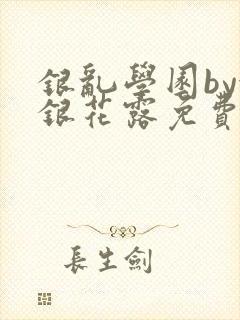 銀亂學園by
銀花露免費
長生劍